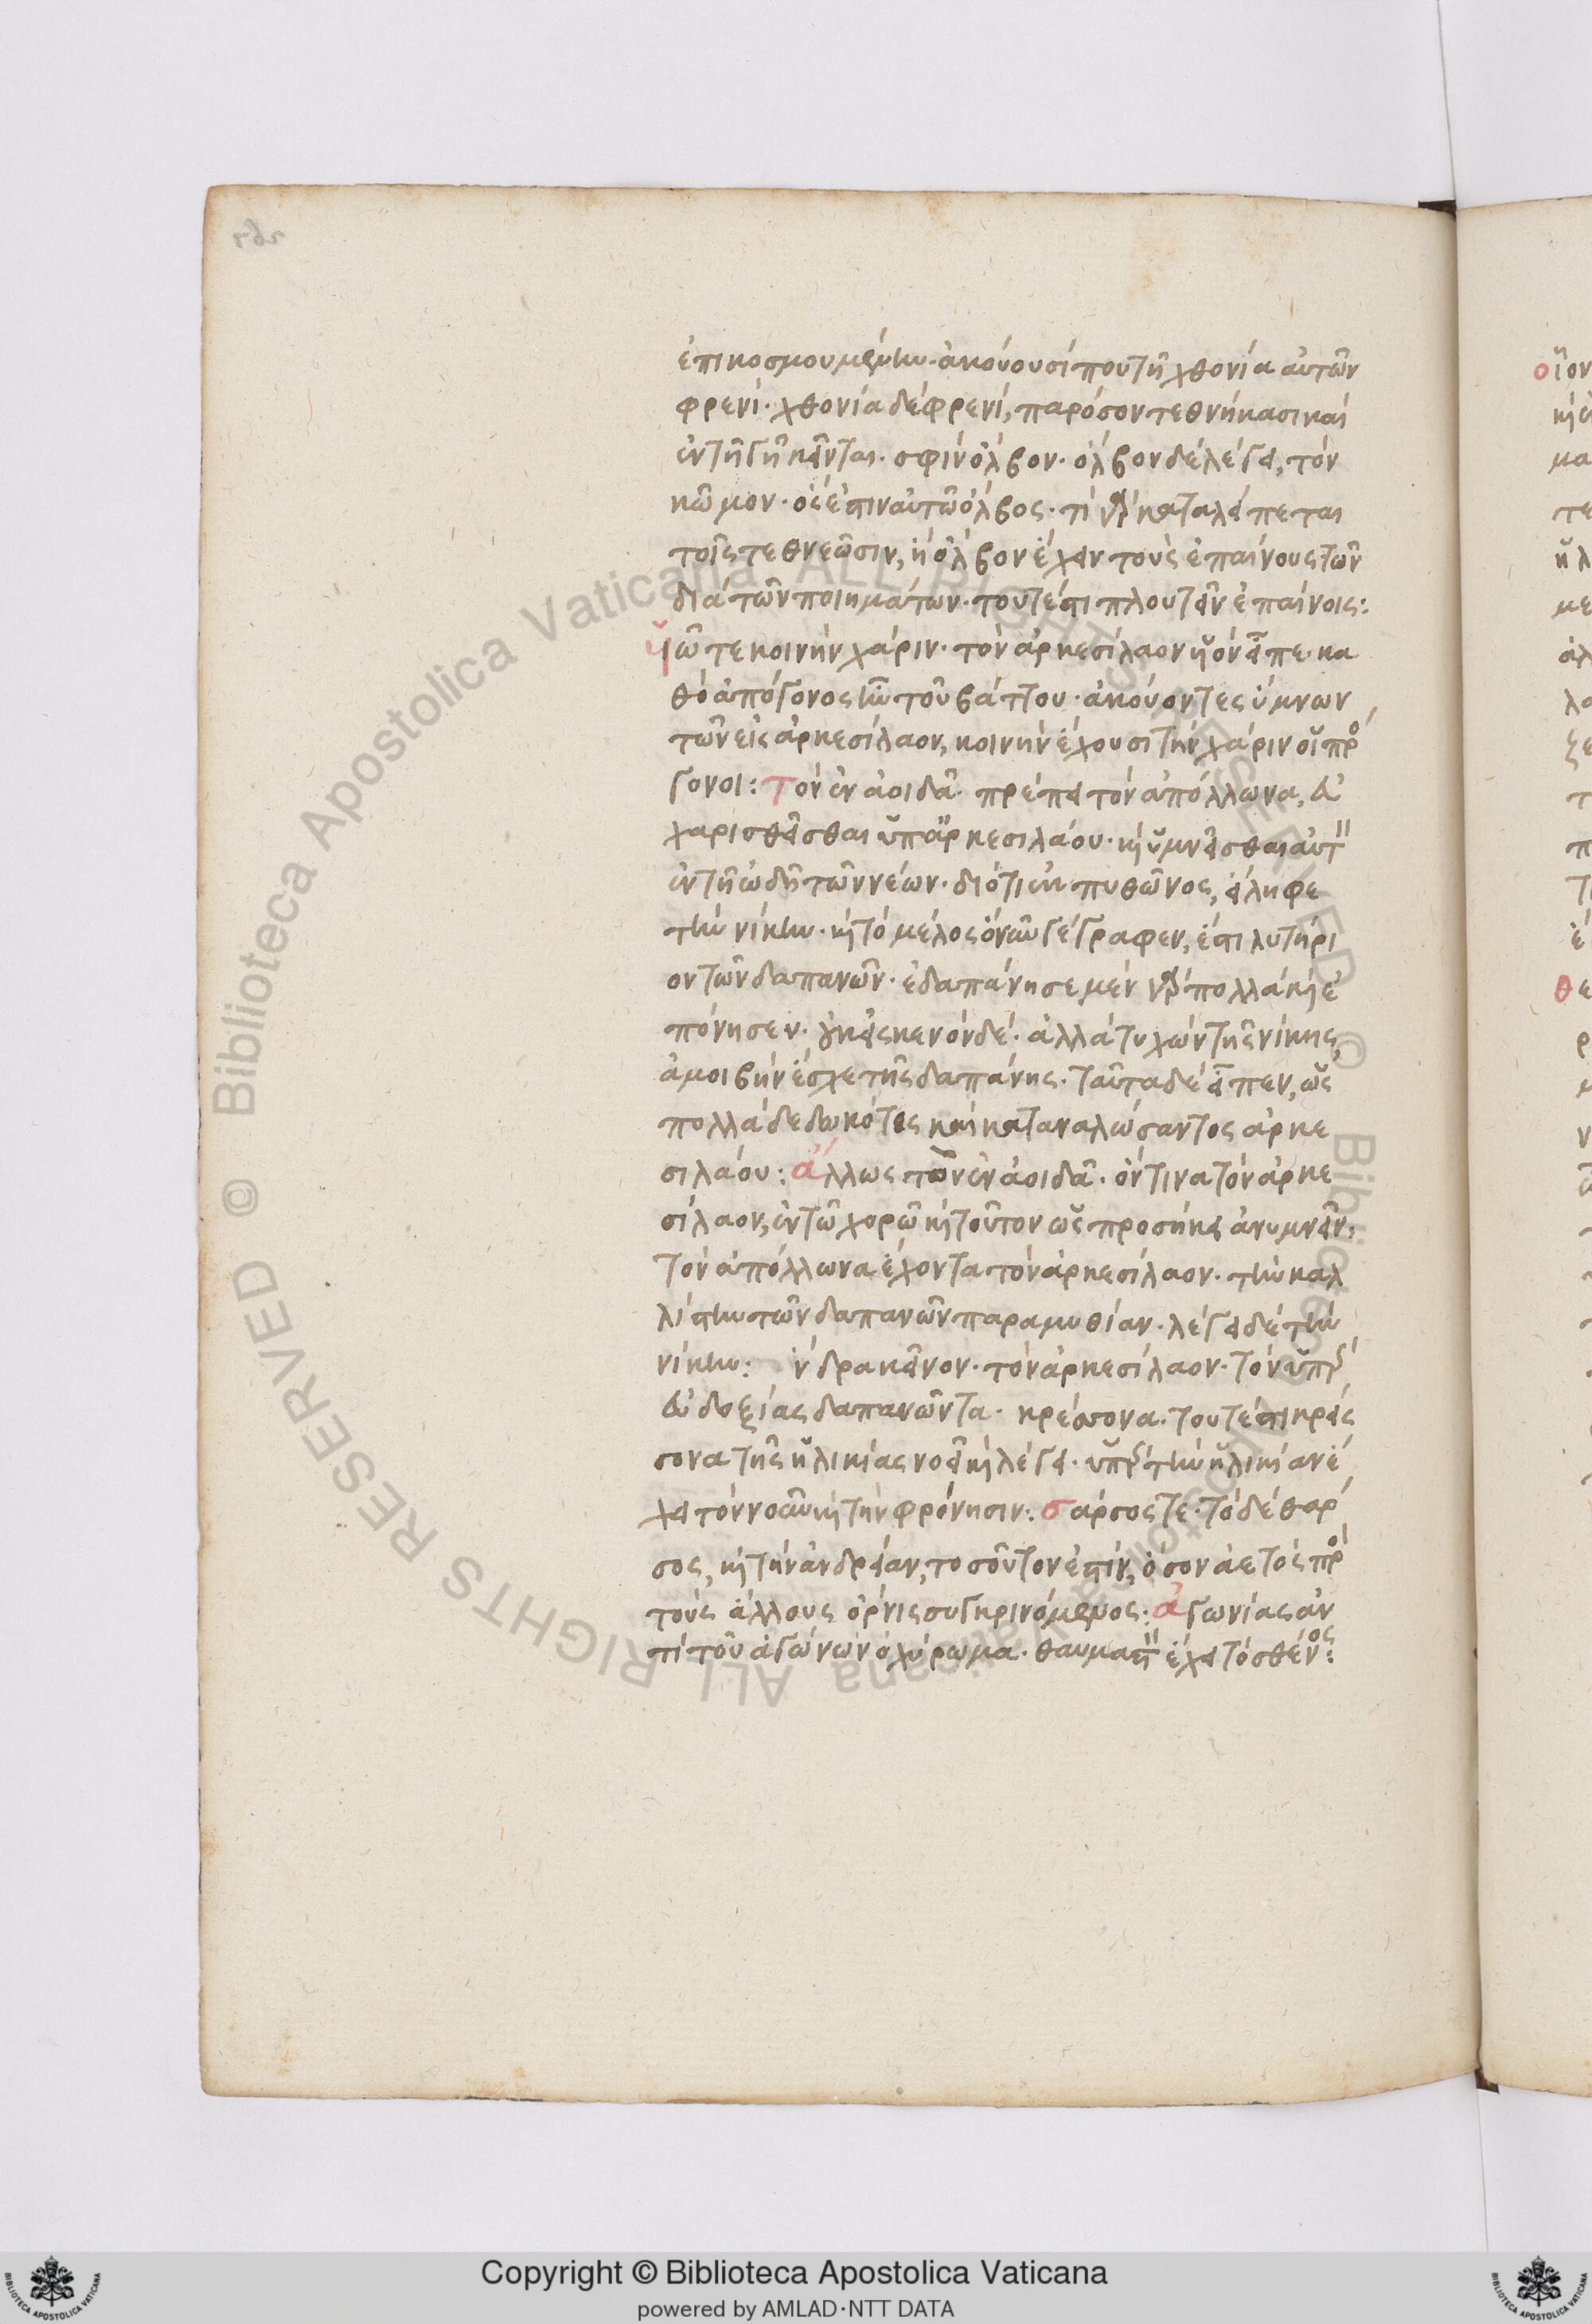 ἐπικοσμουμένην· ἀκούουσί που τῇ χθονία αὐτῶν
φρενί· χθονία δέ φρενί, παρόσον τεθνήκασι καί
ἐν τῇ γῇ κεῖνται· σφίν ὄλβον· ὄλβον δέ λέγει, τόν
κῶμον· ὅς ἐστιν αὐτῶ ὄλβος· τί γάρ καταλείπεται
τοῖς τεθνεῶσιν, ἢ ὄλβον ἔχειν τούς ἐπαίνους τῶν
διά τῶν ποιημάτων· τουτέστι πλουτεῖν ἐπαίνοις:
ὑιῶ τε κοινήν χάριν· τόν ἀρκεσίλαον υἱόν εἶπε· κα
θό ἀπόγονος ἦν τοῦ βάττου· ἀκούοντες ὕμνων
τῶν εἰς ἀρκεσίλαον, κοινήν ἔχουσι τήν χάριν οἱ πρό
γονοι: Τόν ἐν ἀοιδᾶ· πρέπει τόν ἀπόλλωνα, εὐ
χαριστεῖσθαι ὑπ' ἀρκεσιλάου· καί ὑμνεῖσθαι αὐτὸν
ἐν τῇ ὠδῇ τῶν νέων· διότι ἐκ πυθῶνος, εἴληφε
τήν νίκην· καί τό μέλος ὅ νῦν γέγραφεν, ἔστι λυτήρι
ον τῶν δαπανῶν· ἐδαπάνησε μέν γάρ πολλά καί ἐ
πόνησεν· οὐκ εἰς κενόν δέ· ἀλλά τυχών τῆς νίκης,
ἀμοιβήν ἔσχε τῆς δαπάνης· ταῦτα δέ εἶπεν, ὡς
πολλά δεδωκότος καί καταναλώσαντος ἀρκε
σιλάου: ἄλλως τόν ἐν ἀοιδᾶ· ὅντινα τόν ἀρκε
σίλαον, ἐν τῶ χορῶ καί τοῦτον ὡς προσήκει ἀνυμνεῖν·
τόν ἀπόλλωνα ἔχοντα τόν ἀρκεσίλαον· τήν καλ
λίστην τῶν δαπανῶν παραμυθίαν· λέγει δέ τήν
νίκην: ἄνδρα κεῖνον· τόν ἀρκεσίλαον· τόν ὑπέρ
εὐδοξίας δαπανῶντα· κρέσσονα· τουτέστι κρείσ
σονα τῆς ἡλικίας νοεῖ καί λέγει· ὑπέρ τήν ἡλικίαν ἔ
χει τόν νοῦν καί τήν φρόνησιν: σάρσος τε· τό δέ θάρ
σος, καί τήν ἀνδρείαν, τοσοῦτον ἐστίν, ὅσον ἀετός πρό
τούς ἄλλους ὄρνις συγκρινόμενος: ἀγωνίας ἀν
τί τοῦ ἀγώνων ὀχύρωμα· θαυμαστὸν ἔχει τό σθένος:
Copyright © Biblioteca Apostolica Vaticana
powered by AMLAD·NTT DATA